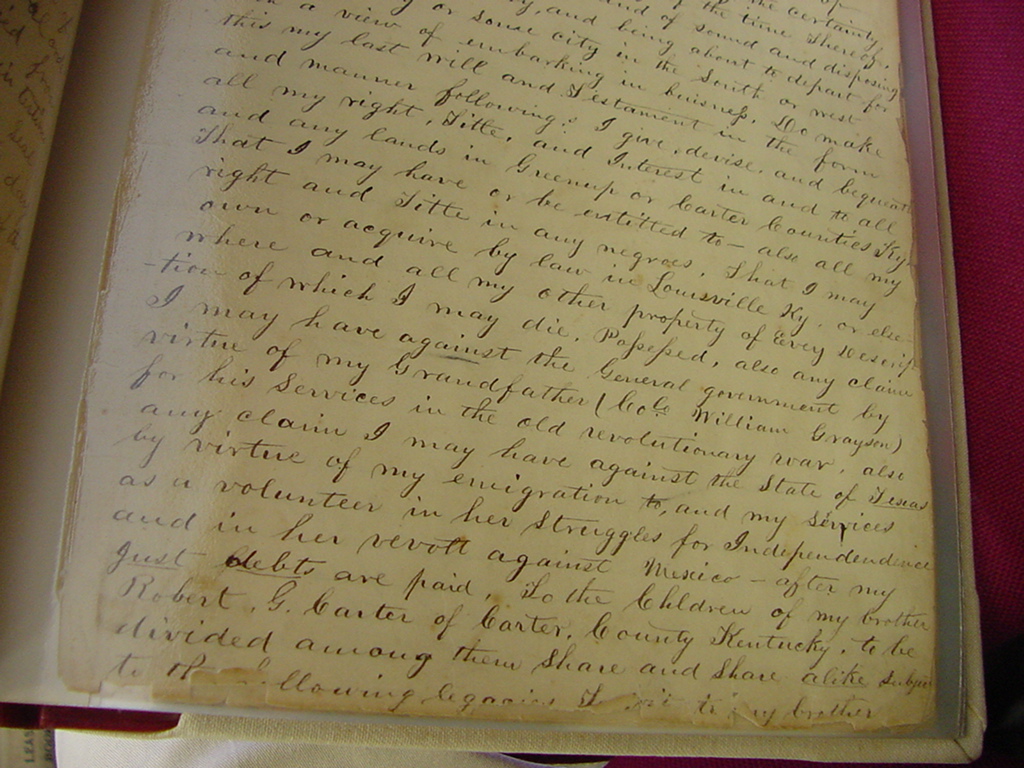 of
the certainty
of the time thereof,
and of sound and disposing
and being about to depart for
or some city in the South or west
a view of embarking in buisness, Do make
this my last will and Testament in the form
and manner following: I give, devise, and bequeath
all my right, Title, and Interest in and to all
and any lands in Greenup or Carter Counties Ky
That I may have or be entitled to – also all my
right and Title in any negroes, That I may
own or acquire by law in Louisville Ky. or else-
where and all my other property of Every Descrip-
-tion of which I may die, Possessed, also any claim
I may have against the General government by
virtue of my Grandfather (Col. William Grayson)
for his Services in the old revolutionary war, also
any claim I may have against the State of Texas
by virtue of my emigration to, and my Services
as a volunteer in her Struggles for Independendence
and in her revolt against Mexico – after my
Just debts are paid, To the Children of my brother
Robert, G. Carter of Carter, County Kentucky, to be
divided among them Share and Share alike
to following legacies brother
LEAS